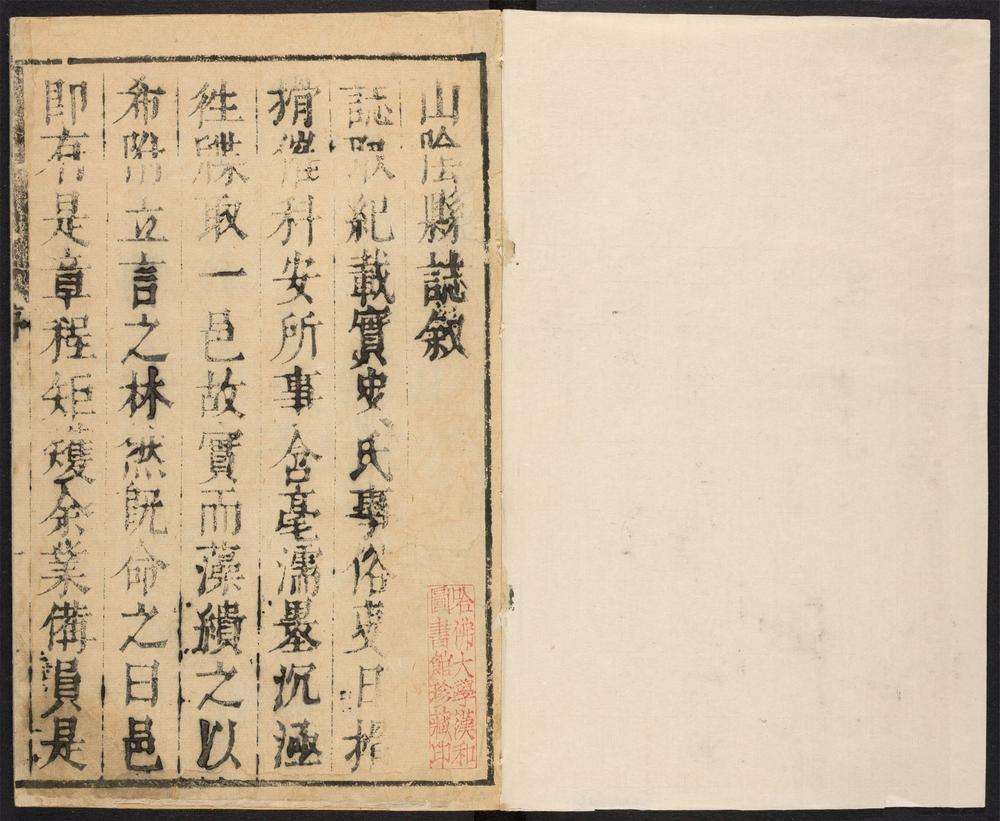 山陰縣誌敘
誌取紀載實史氏學俗吏日指
揹催科安所事含毫濡墨沉湎
往牒取一邑故實而藻繢之以
希附立言之林然既命之曰邑
即有是章程矩矱余業備員是
哈佛大學漢和
圖書館珍藏印